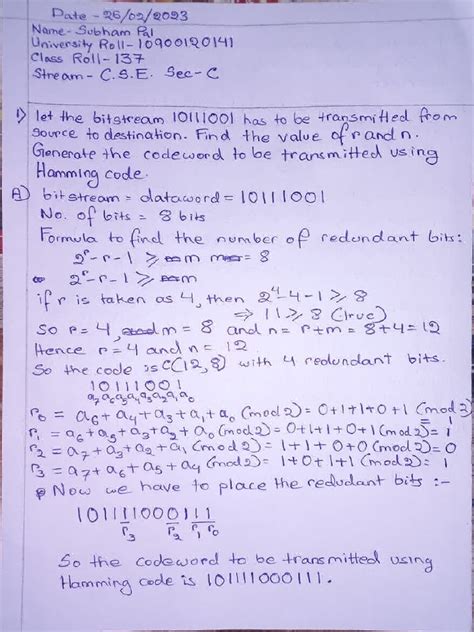 Date - 26/02/2023
Name- Subham Pal
University Roll- 10900120141
Class Roll- 137
Stream - C.S.E. Sec-C
1) let the bitstream 10111001 has to be transmitted from
source to destination. Find the value of r and n.
Generate the codeword to be transmitted using
Hamming code.
A) bit stream = dataword = 10111001
No. of bits = 8 bits
Formula to find the number of redundant bits:
2^r - r - 1 ≥ m m = 8
2^r - r - 1 ≥ m
if r is taken as 4, then 2^4 - 4 - 1 ≥ 8
⇒ 11 ≥ 8 (true)
So r = 4, m = 8 and n = r+m = 8+4 = 12
Hence r = 4 and n = 12
So the code is C(12,8) with 4 redundant bits.
10111001
a7a6a5a4a3a2a1a0
r0 = a6+a4+a3+a1+a0 (mod 2) = 0+1+1+0+1 (mod 2) = 1
r1 = a6+a5+a3+a2+a0 (mod 2) = 0+1+1+0+1 (mod 2) = 1
r2 = a7+a3+a2+a1 (mod 2) = 1+1+0+0 (mod 2) = 0
r3 = a7+a6+a5+a4 (mod 2) = 1+0+1+1 (mod 2) = 1
Now we have to place the redudant bits :-
101111000111
r3 r2 r1 r0
So the codeword to be transmitted using
Hamming code is 101111000111.